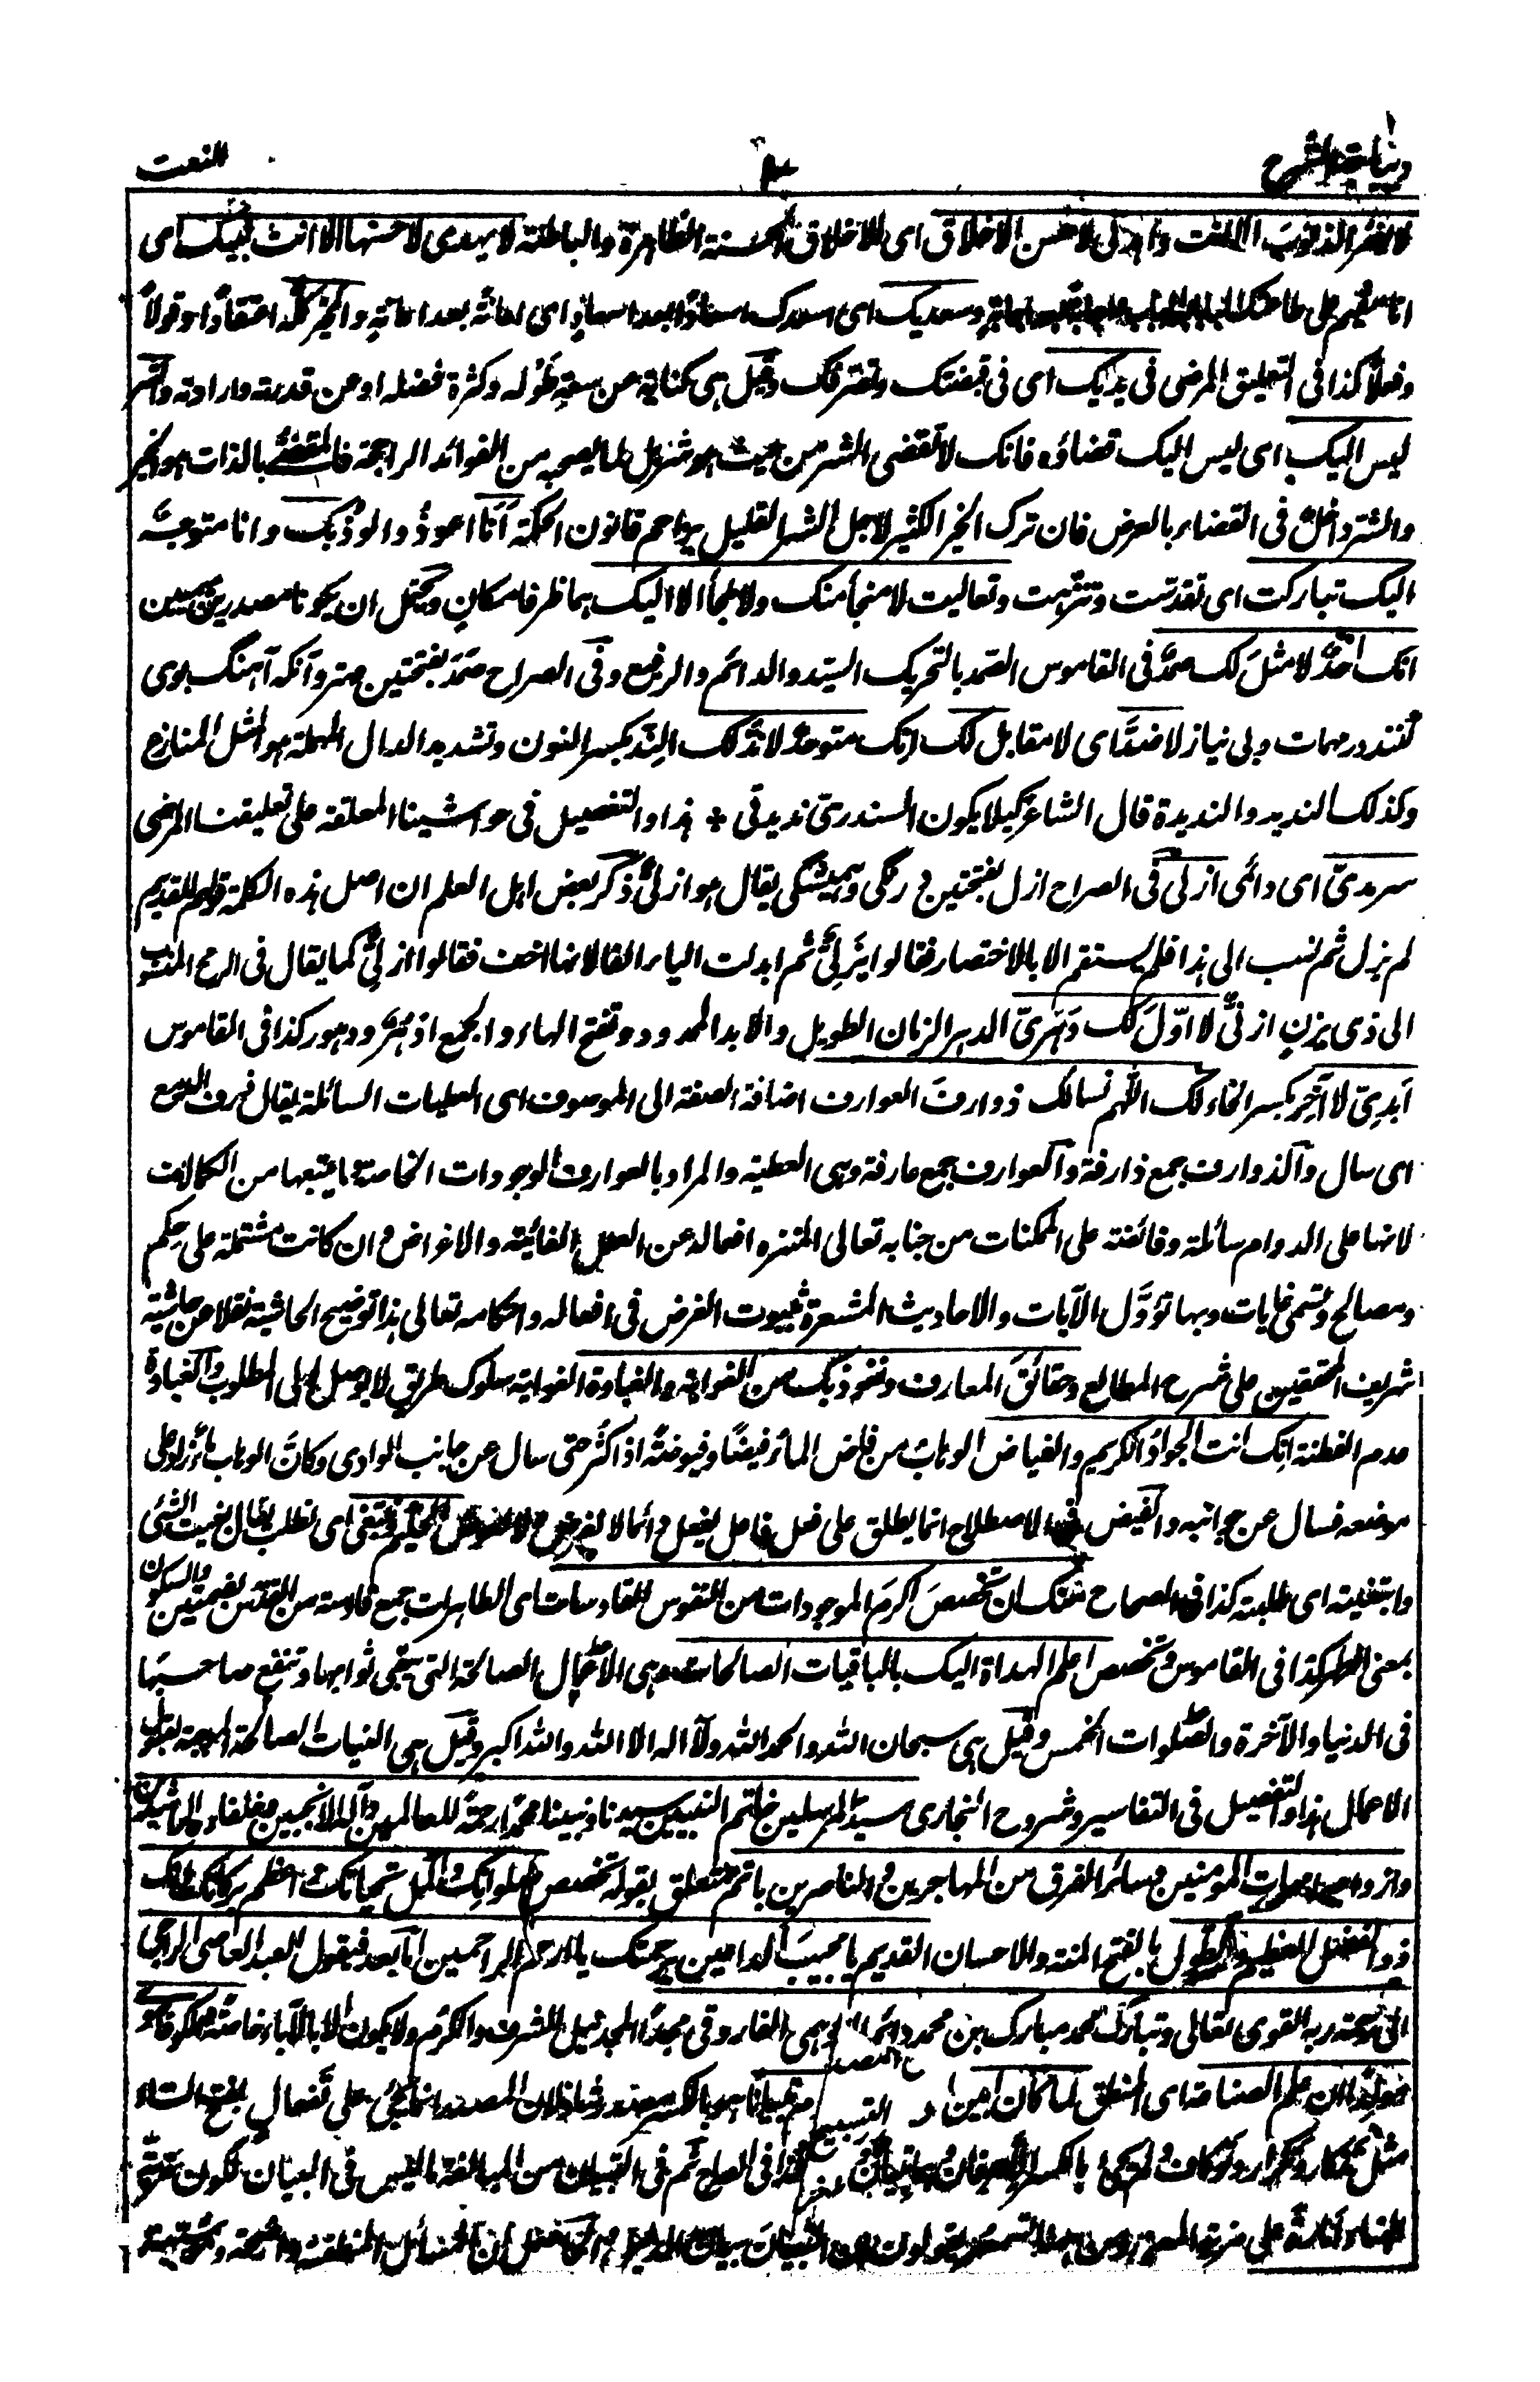 ديباجة الشرح ٣ النعت
لا يغفر الذنوب الا انت واهدني لاحسن الاخلاق اى للاخلاق الحسنة الظاهرة والباطنة لا يهدى لاحسنها الا انت لبيك اى
انا مقيم على طاعتك وسعديك اى اسعدك اسعادًا بعد اسعادٍ اى اعانةً بعد اعانةٍ والخير كله اعتقادًا وقولاً
وفعلاً كذا فى التعليق المرضى فى يديك اى فى قبضتك وتصرفك وقيل هى كناية عن سعة طَوْله وكثرة فضله او عن قدرته وارادته والشر
ليس اليك اى ليس اليك قضاؤه فانك لا تقضى الشر من حيث هو شر بل لما يصحبه من الفوائد الراجحة فالمقضى بالذات هو الخير
والشر داخل فى القضاء بالعرض فان ترك الخير الكثير لاجل الشر القليل يزاحم قانون الحكمة آنا اعوذ والوذ بك وانا متوجه
اليك تباركت اى تقدست وتنزهت وتعاليت لا منجأ منك ولا ملجأ الا اليك هما ظرفا مكانٍ ويحتمل ان يكونا مصدرين ميميين
انك احدٌ لا مثلَ لك صمدٌ فى القاموس الصمد بالتحريك السيد والدائم والرفيع وفى الصراح صَمَدَ بفتحتين مهتر وآنكه آهنگ بوى
كنند در مهمات وبى نياز لا ضدَّ اى لا مقابل لك انك متوحدٌ لا ندَّ لك النِد بكسر النون وتشديد الدال المهملة هو المثل المنازع
وكذلك النديد والنديدة قال الشاعر كيلا يكون السندرىّ نديدتى ٭ هذا والتفصيل فى حواشينا المعلقة على تعليقنا المرضى
سرمدىّ اى دائمى ازلىّ فى الصراح ازل بفتحتين وهميشگى يقال هو ازلىٌّ ذكر بعض اهل العلم ان اصل هذه الكلمة قولهم للقديم
لم يزل ثم نسب الى هذا فلم يستقم الا بالاختصار فقالوا يَزَلىٌّ ثم ابدلت الياء الفا لانها اخف فقالوا ازلىٌّ كما يقال فى الرمح المنسوب
الى ذى يزنٍ ازنىٌّ لا اوّلَ لك دَهَرىّ الدهر الزمان الطويل والابد الممدود وتفتح الهاء والجمع ادهُرٌ ودهور كذا فى القاموس
اَبدِىّ لا آخِر بكسر الخاء لك اللّهم نسالك ذوارفَ العوارف اضافة الصفة الى الموصوف اى العطيات السائلة يقال ذرف الدمع
اى سال والذوارف جمع ذارفة والعوارف جمع عارفة وهى العطية والمراد بالعوارف الوجودات الخاصة وما يتبعها من الكمالات
لانها على الدوام سائلة وفائضة على الممكنات من جنابه تعالى المنزه افعاله عن العلل الغائية والاغراض وان كانت مشتملة على حِكم
ومصالح وتسمى غايات وبها تؤوَّل الآيات والاحاديث المشعرة بثبوت الغرض فى افعاله واحكامه تعالى هذا توضيح الحاشية نقلا عن حاشية
شريف المحققين على شرح المطالع وحقائقَ المعارف ونعوذ بك من الغواية والغباوة الغواية سلوك طريق لا يوصل الى المطلوب والغباوة
عدم الفطنة انك انت الجوادُ الكريم والفياض الوهاب من فاض الماء فيضًا وفيوضةً اذا كثُر حتى سال عن جانب الوادى وكانَّ الوهاب ماء زاد على
موضعه فسال عن جوانبه والفيض فى الاصطلاح انما يطلق على فعل فاعل يفعل دائما لا لغرض ولا لعوض ونبتغى اى نطلب يقال بغيت الشئ
وابتغيته اى طلبته كذا فى الصحاح منك ان تخصصَ اكرمَ الموجودات من النفوس القادسات اى الطاهرات جمع قادسة من القدس بضمتين والسكون
بمعنى الطهر كذا فى القاموس وتخصص اعلم الهداة اليك بالباقيات الصالحات وهى الاعمال الصالحة التى يبقى ثوابها وتنفع صاحبها
فى الدنيا والآخرة والصلوات الخمس وقيل هى سبحان الله والحمد لله ولا اله الا الله والله اكبر وقيل هى النيات الصالحة الموجبة لقبول
الاعمال هذا والتفصيل فى التفاسير وشروح البخارى سيدَ المرسلين خاتم النبيين سيدنا ونبينا محمدًا رحمةً للعالمين وآله الانجبين وخلفاءه الراشدين
وازواجه امهات المؤمنين وسائر الفرق من المهاجرين والناصرين باتم متعلق بقوله تخصص صلواتك واكمل تحياتك واعظم بركاتك انك
ذو الفضل العظيم والطَول بالفتح المنة والاحسان القديم يا مجيبَ الداعين برحمتك يا ارحم الراحمين امّا بعد فيقول العبد العاصى الراجى
الى رحمة ربه القوى تعالى وتبارك محمد مبارك بن محمد دائم الفاروقى مجدًا المجد نيل الشرف والكرم ولا يكون الا بالآباء خاصةً
ان علم الصناعة اى المنطق لما كان ابين تبيانا هو بالكسر مصدر شاذ لان المصدر انما يجئ على تَفعال بفتح التاء
مثل تَذكار وتَكرار وتَوكاف ولم يجئ بالكسر الا حرفان كذا فى الصراح ثم فى التبيان من المبالغة ما ليس فى البيان لكون